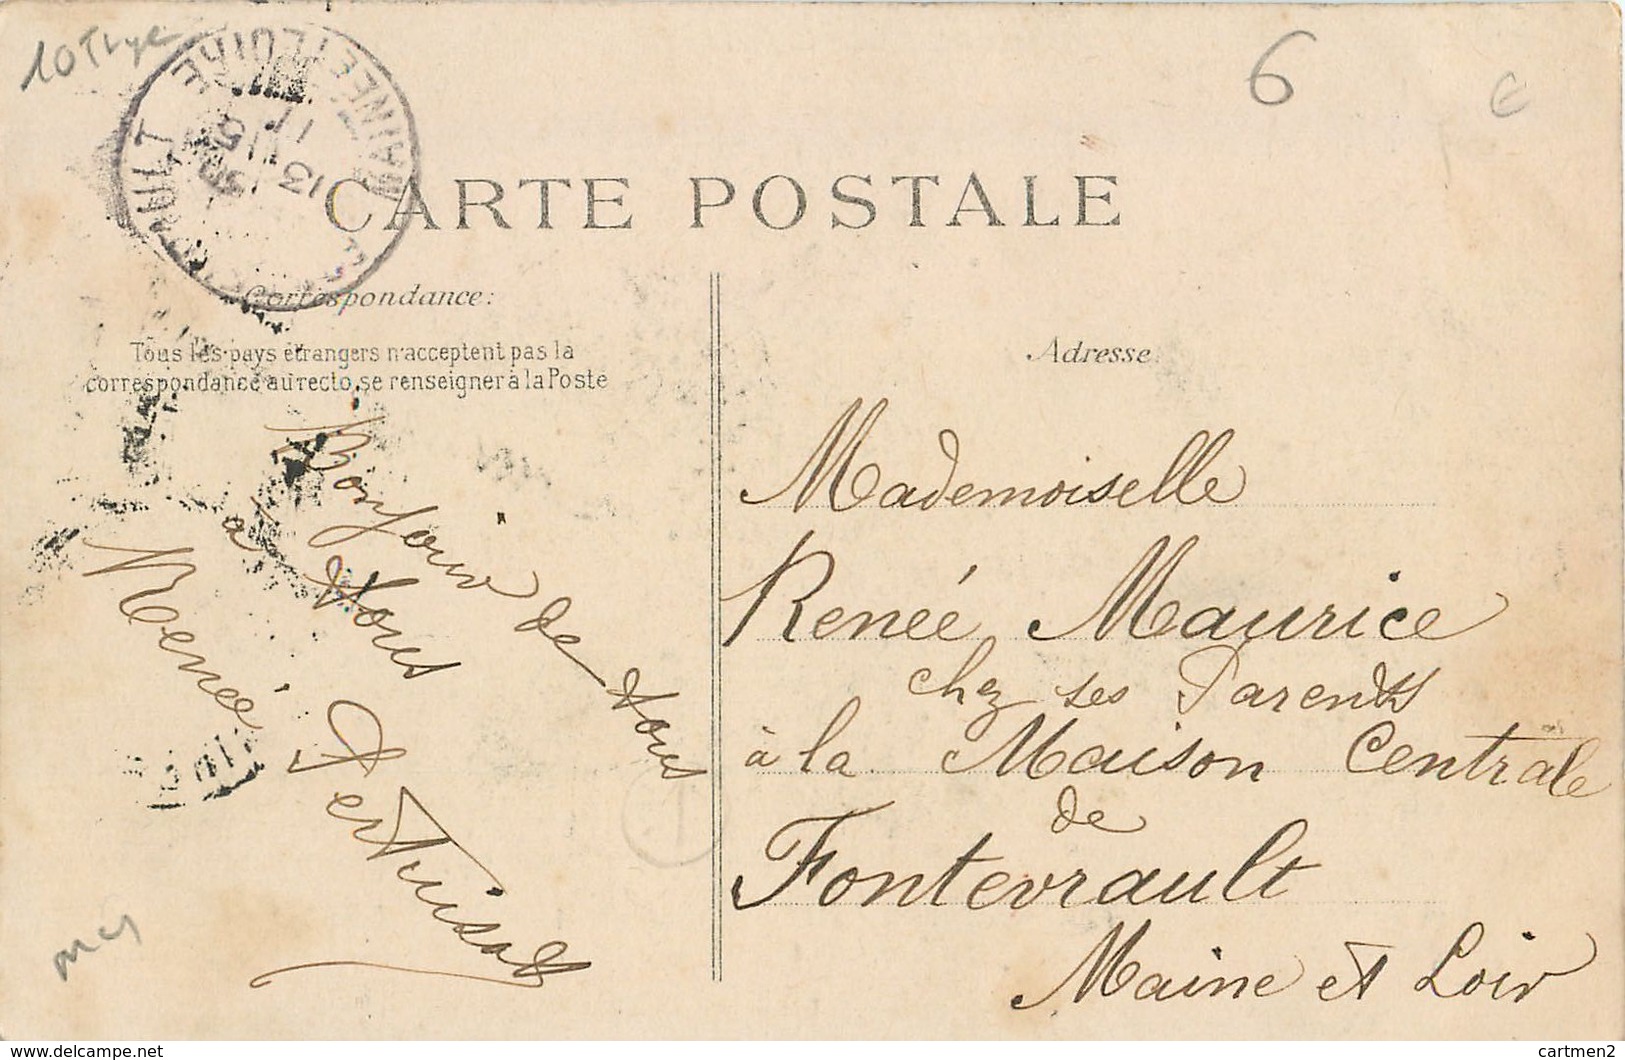 10
6
€
MAINE-ET-LOIRE
13
CARTE POSTALE
Correspondance:
Tous les pays étrangers n'acceptent pas la
correspondance au recto, se renseigner à la Poste
Bonjour de tous
à tous
Renée
Pertuisot
Adresse
Mademoiselle
Renée Maurice
chez ses Parents
à la Maison Centrale
de
Fontevrault
Maine et Loir
www.delcampe.net
cartmen2